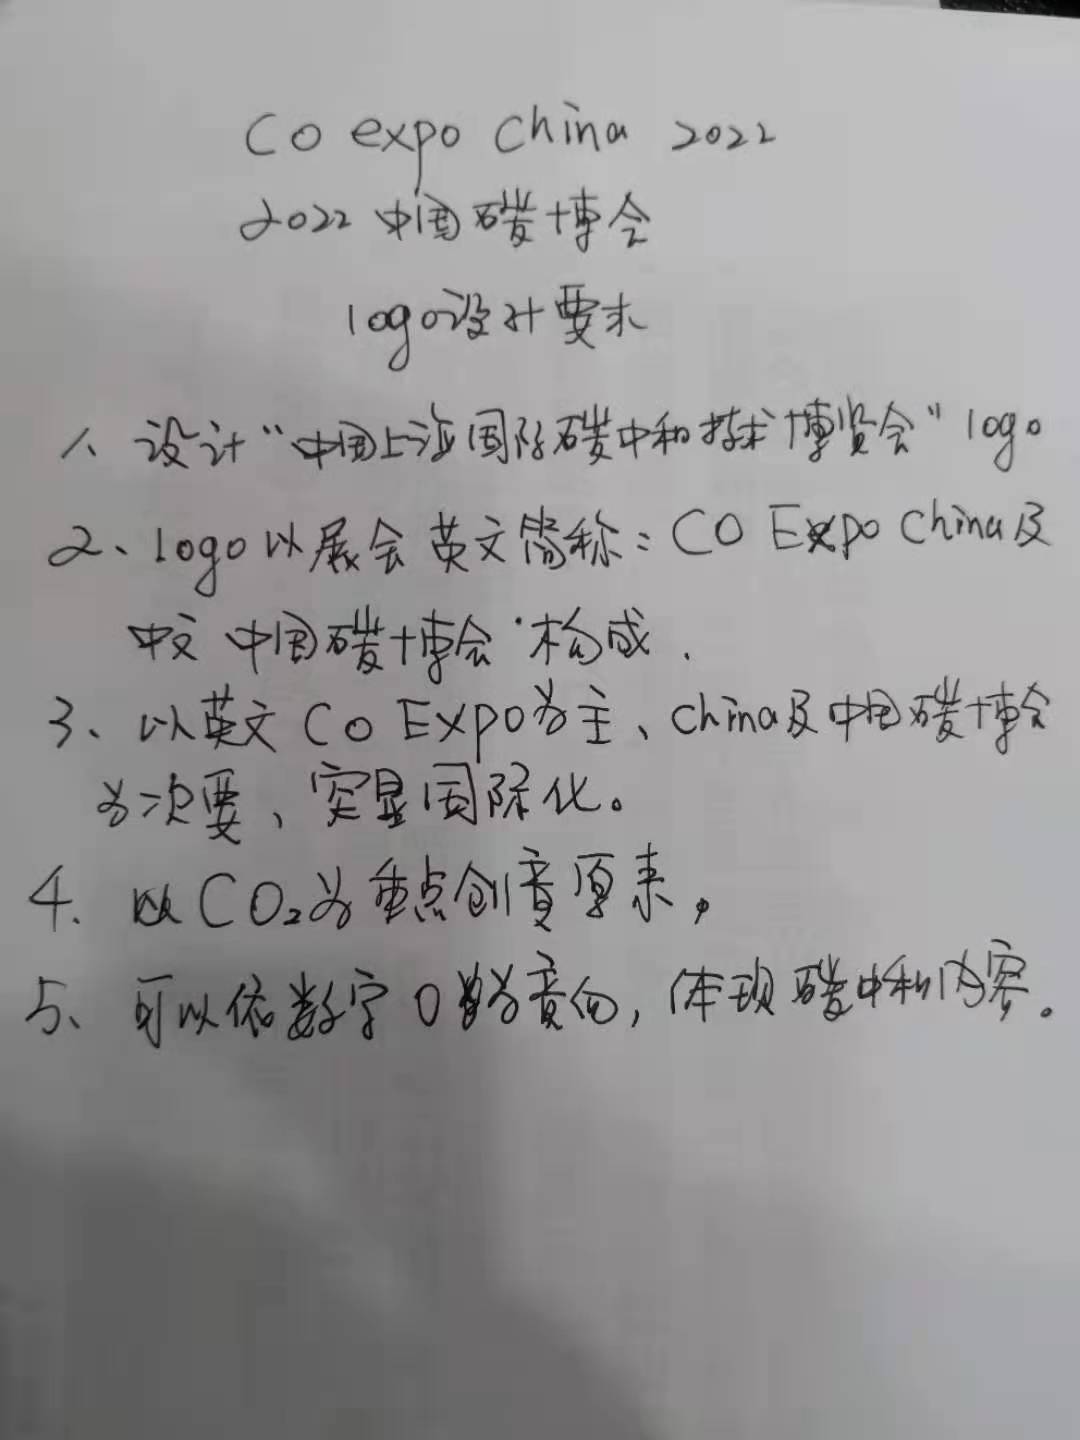 CO expo China 2022
2022 中国碳博会
logo设计要求
1、设计“中国上海国际碳中和技术博览会”logo
2、logo以展会英文简称：CO Expo China及
中文 中国碳博会 构成.
3、以英文 CO Expo为主、China及中国碳博会
为次要、突显国际化。
4. 以CO₂为重点创意原素，
5、可以依数字0为意向，体现碳中和内容。